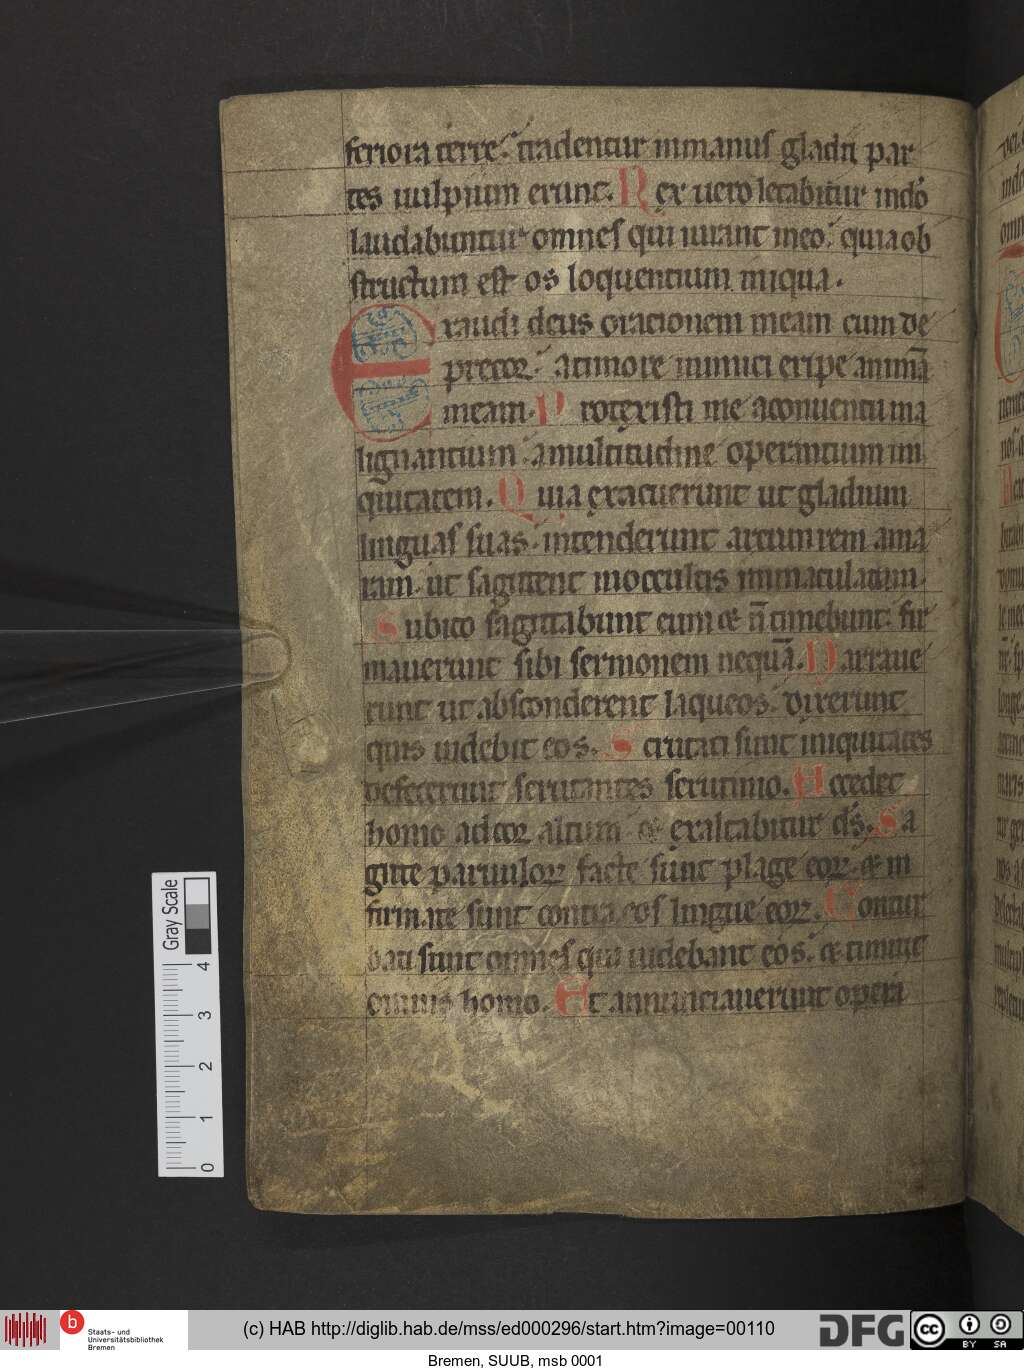 feriora terre. tradentur inmanus gladii par
tes uulpium erunt. Rex uero letabitur indo
laudabuntur omnes qui iurant ineo. quia ob
structum est os loquentium iniqua.
Exaudi deus orationem meam cum de
precor. atimore inimici eripe animā
meam. Protexisti me aconuentu ma
lignantium. amultitudine operantium ini
quitatem. Quia exacuerunt ut gladium
linguas suas. intenderunt arcum rem ama
ram. ut sagittent inoccultis inmaculatum.
Subito sagittabunt eum et n̄ timebunt. fir
mauerunt sibi sermonem nequā. Narraue
runt ut absconderent laqueos. dixerunt
quis uidebit eos. Scrutati sunt iniquitates
defecerunt scrutantes scrutinio. Accedet
homo adcor altum et exaltabitur ds. Sa
gitte paruulorꝝ facte sunt plage eorꝝ. et in
firmate sunt contra eos lingue eorꝝ. Contur
bati sunt omnes qui uidebant eos. et timuit
omnis homo. Et annunciauerunt opera
Gray Scale
4
3
2
1
0
b
Staats- und
Universitätsbibliothek
Bremen
(c) HAB http://diglib.hab.de/mss/ed000296/start.htm?image=00110
DFG
cc
BY SA
Bremen, SUUB, msb 0001